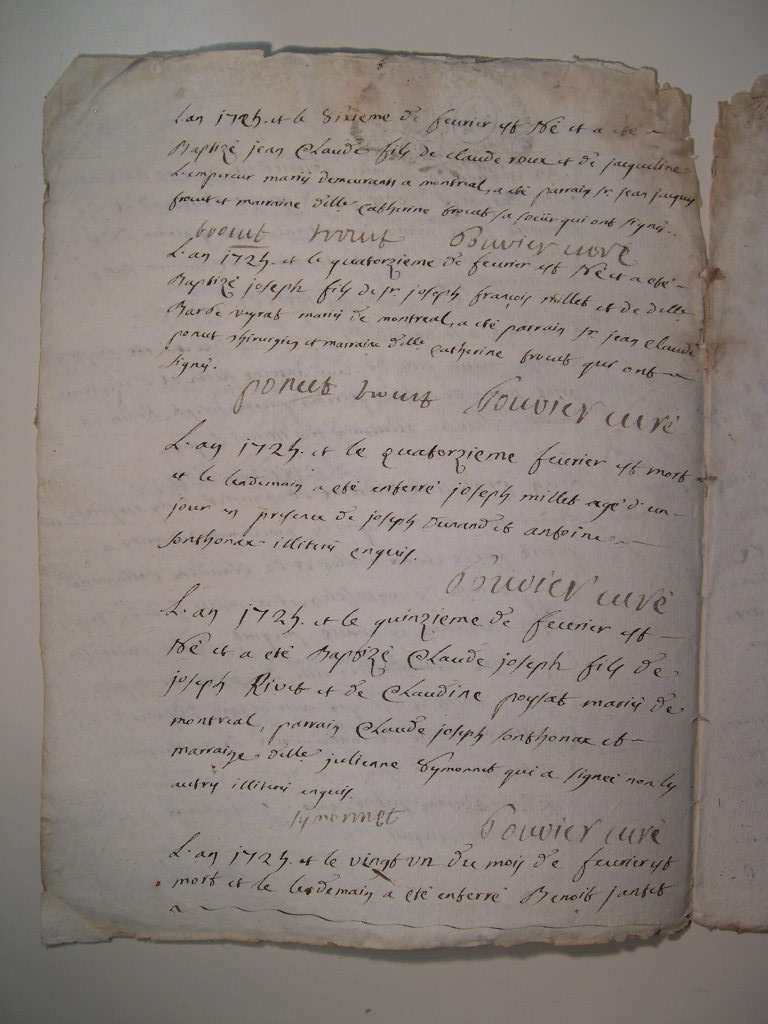 L'an 1725. et le sixieme de feurier est né et a eté
Baptizé jean Claude fils de claude roux et de jacqueline
L'empereur mariés demeurants a montreal, a eté parrain sr. jean jaques
et marraine delle. catherine sa soeur qui ont signés.
Bouvier curé
L'an 1725. et le quatorzieme de feurier est né et a eté
Baptizé joseph fils de sr. joseph françois millet et de delle.
mariés de montreal, a eté parrain sr. jean claude
ponut chirurgien et marraine delle. catherine qui ont
signés.
ponut Bouvier curé
L'an 1725. et le quatorzieme feurier est mort
et le lendemain a eté enterré joseph millet agé d'un
jour en presence de joseph durand et antoine
sonthonax illiterés enquis.
Bouvier curé
L'an 1725. et le quinzieme de feurier est
né et a eté Baptizé Claude joseph fils de
joseph Rivet et de Claudine poysat mariés de
montreal, parrain Claude joseph sonthonax et
marraine delle. julienne symonnet qui a signée non les
autres illiterés enquis.
symonnet Bouvier curé
L'an 1725. et le vingt un du mois de feurier est
mort et le lendemain a eté enterré Benoit jantet